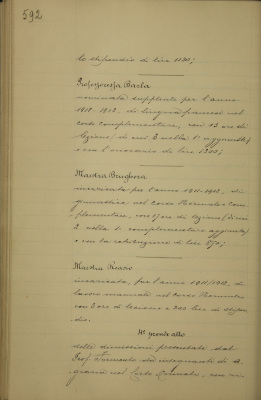 592
lo stipendio di lire 1170;
Professoressa Barla
nominata supplente per l'anno
1911-1912, di lingua francese nel
corso complementare, con 13 ore di
lezione (di cui 2 nella 1ª aggiunta)
e con l'onorario di lire 1300;
Maestra Brughera
incaricata per l'anno 1911-1912, di
ginnastica nel corso Normale e Com-
plementare, con ore di lezione (di cui
2 nella 1ª complementare aggiunta)
e con la retribuzione di lire 850;
Maestra Rosso
incaricata, per l'anno 1911/1912, di
lavoro manuale nel corso Normale
con 2 ore di lezione e 200 lire di stipen-
dio.
prende atto
delle dimissioni presentate dal
Prof. da insegnante di a-
graria nel Corso Normale, con